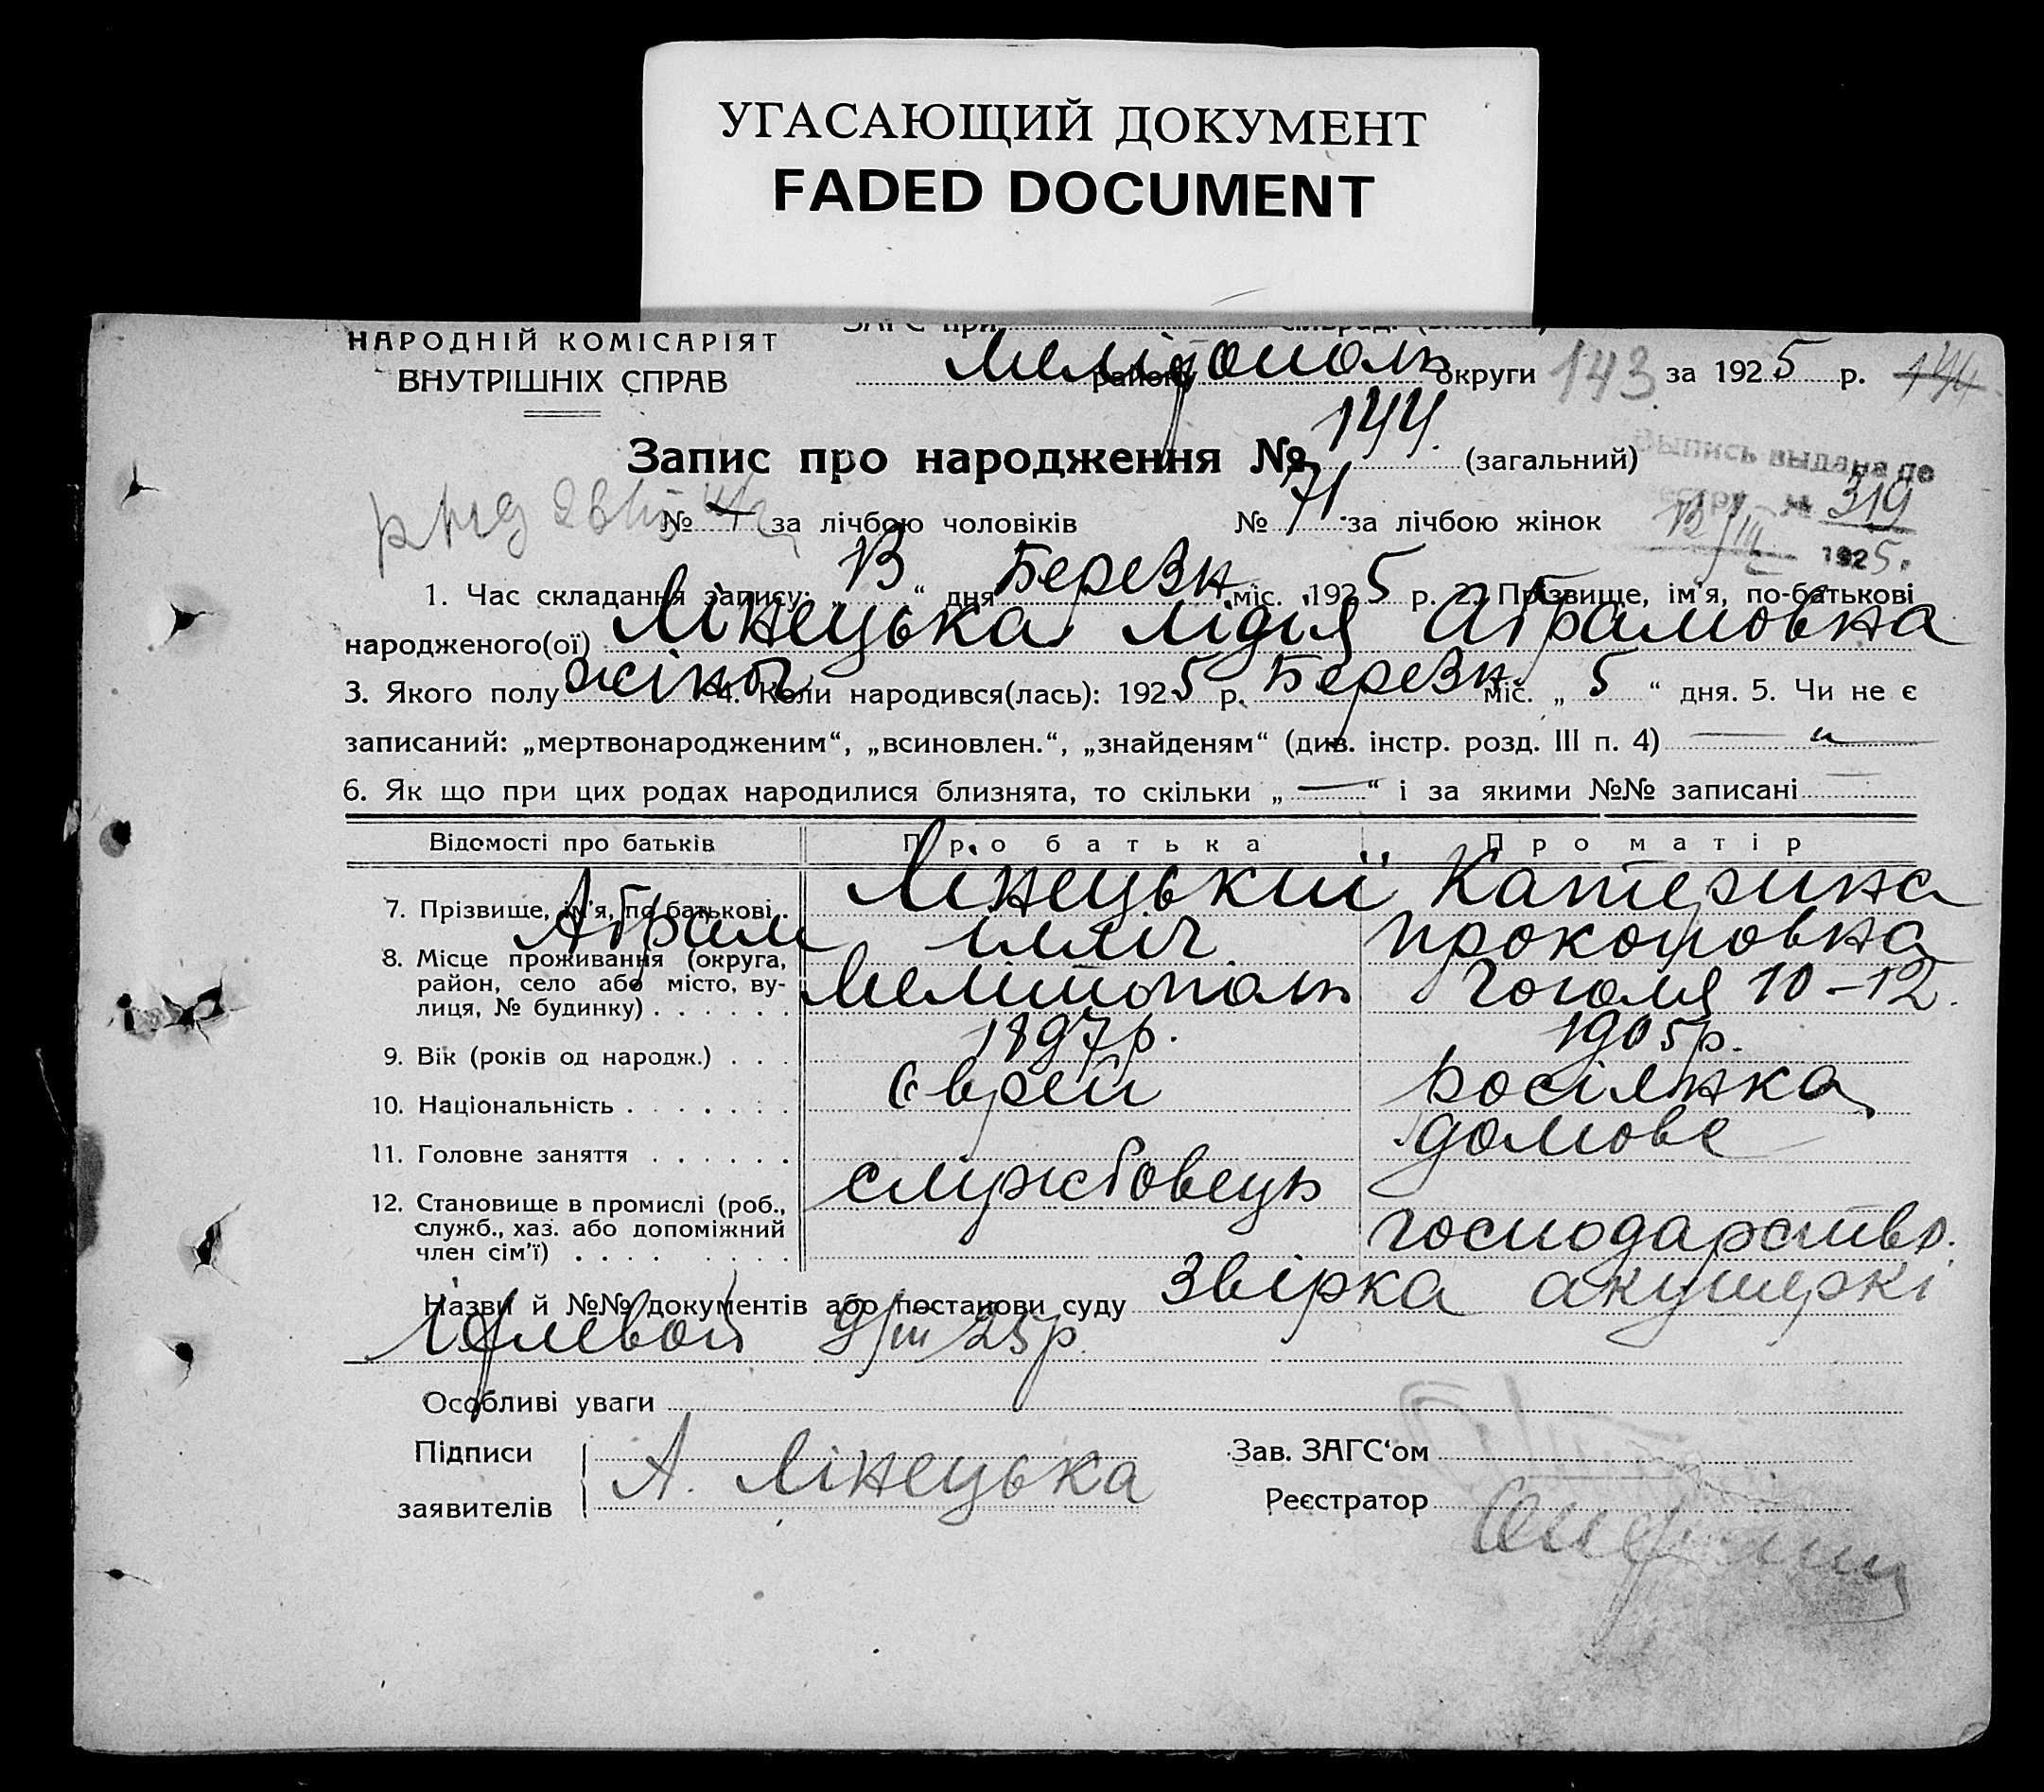 УГАСАЮЩИЙ ДОКУМЕНТ
FADED DOCUMENT
НАРОДНІЙ КОМІСАРІЯТ
ВНУТРІШНІХ СПРАВ
ЗАГС при
району Мелітополь округи 143 за 1925 р. 144
Запис про народження № 144. (загальний)
Выпись выдана по
реестру № 319
13/III 1925.
№ за лічбою чоловіків № 71 за лічбою жінок
1. Час складання запису: „13“ дня Березн міс. 1925 р. 2. Прізвище, ім'я, по-батькові
народженого(ої) Лінецька Лідія Абрамовна
3. Якого полу жіноч 4. Коли народився(лась): 1925 р. Березн міс. „5“ дня. 5. Чи не є
записаний: „мертвонародженим“, „всиновлен.“, „знайденям“ (див. інстр. розд. III п. 4) — „ —
6. Як що при цих родах народилися близнята, то скільки „—“ і за якими №№ записані —
Відомості про батьків Про батька Про матір
7. Прізвище, ім'я, по батькові. Лінецький Катерина
Абрам Ілліч Прокоповна
8. Місце проживання (округа,
район, село або місто, ву-
лиця, № будинку) . . . . . . Мелитополь Гоголя 10-12.
9. Вік (років од народж.) . . . 1897 р. 1905 р.
10. Національність . . . . . . . Єврей росіянка
11. Головне заняття . . . . . . службовець домове
12. Становище в промислі (роб.,
служб., хаз. або допоміжний
член сім'ї) . . . . . . . . господарство.
Назви й №№ документів або постанови суду Звірка акушеркі
9/III 25 р.
Особливі уваги
Підписи
заявителів А. Лінецька
Зав. ЗАГС'ом
Реєстратор